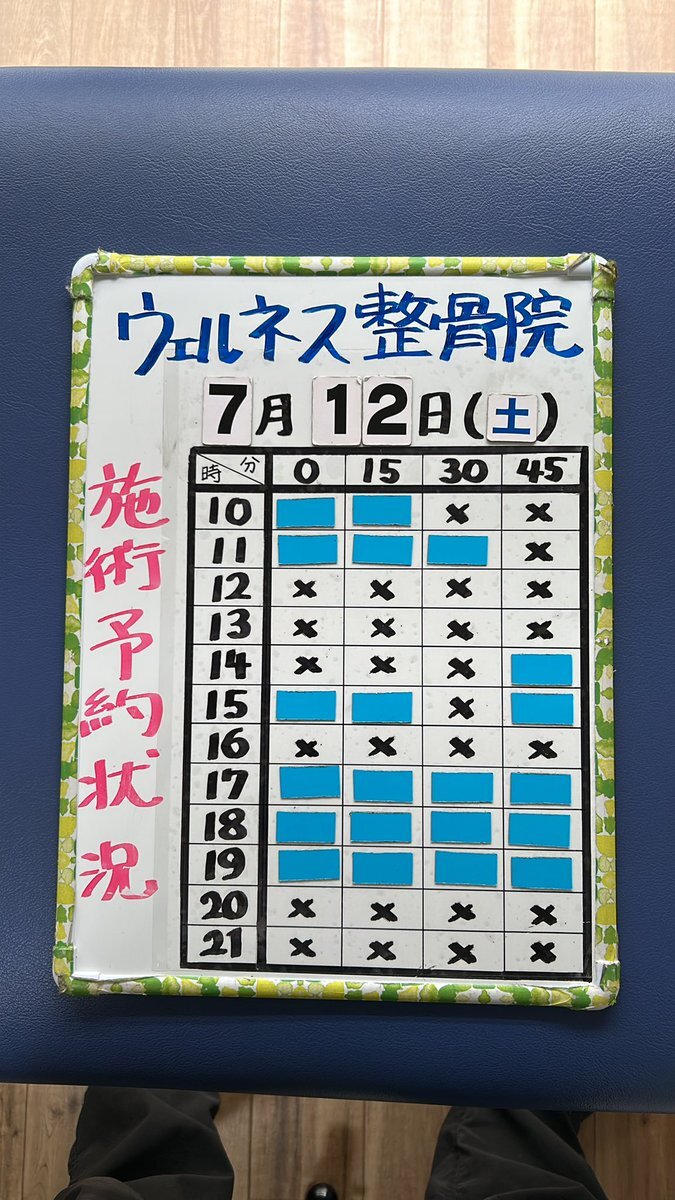 ウェルネス整骨院
7月12日(土)
施術予約状況
時 分 0 15 30 45
10 × ×
11 ×
12 × × × ×
13 × × × ×
14 × × ×
15 ×
16 × × × ×
17
18
19
20 × × × ×
21 × × × ×